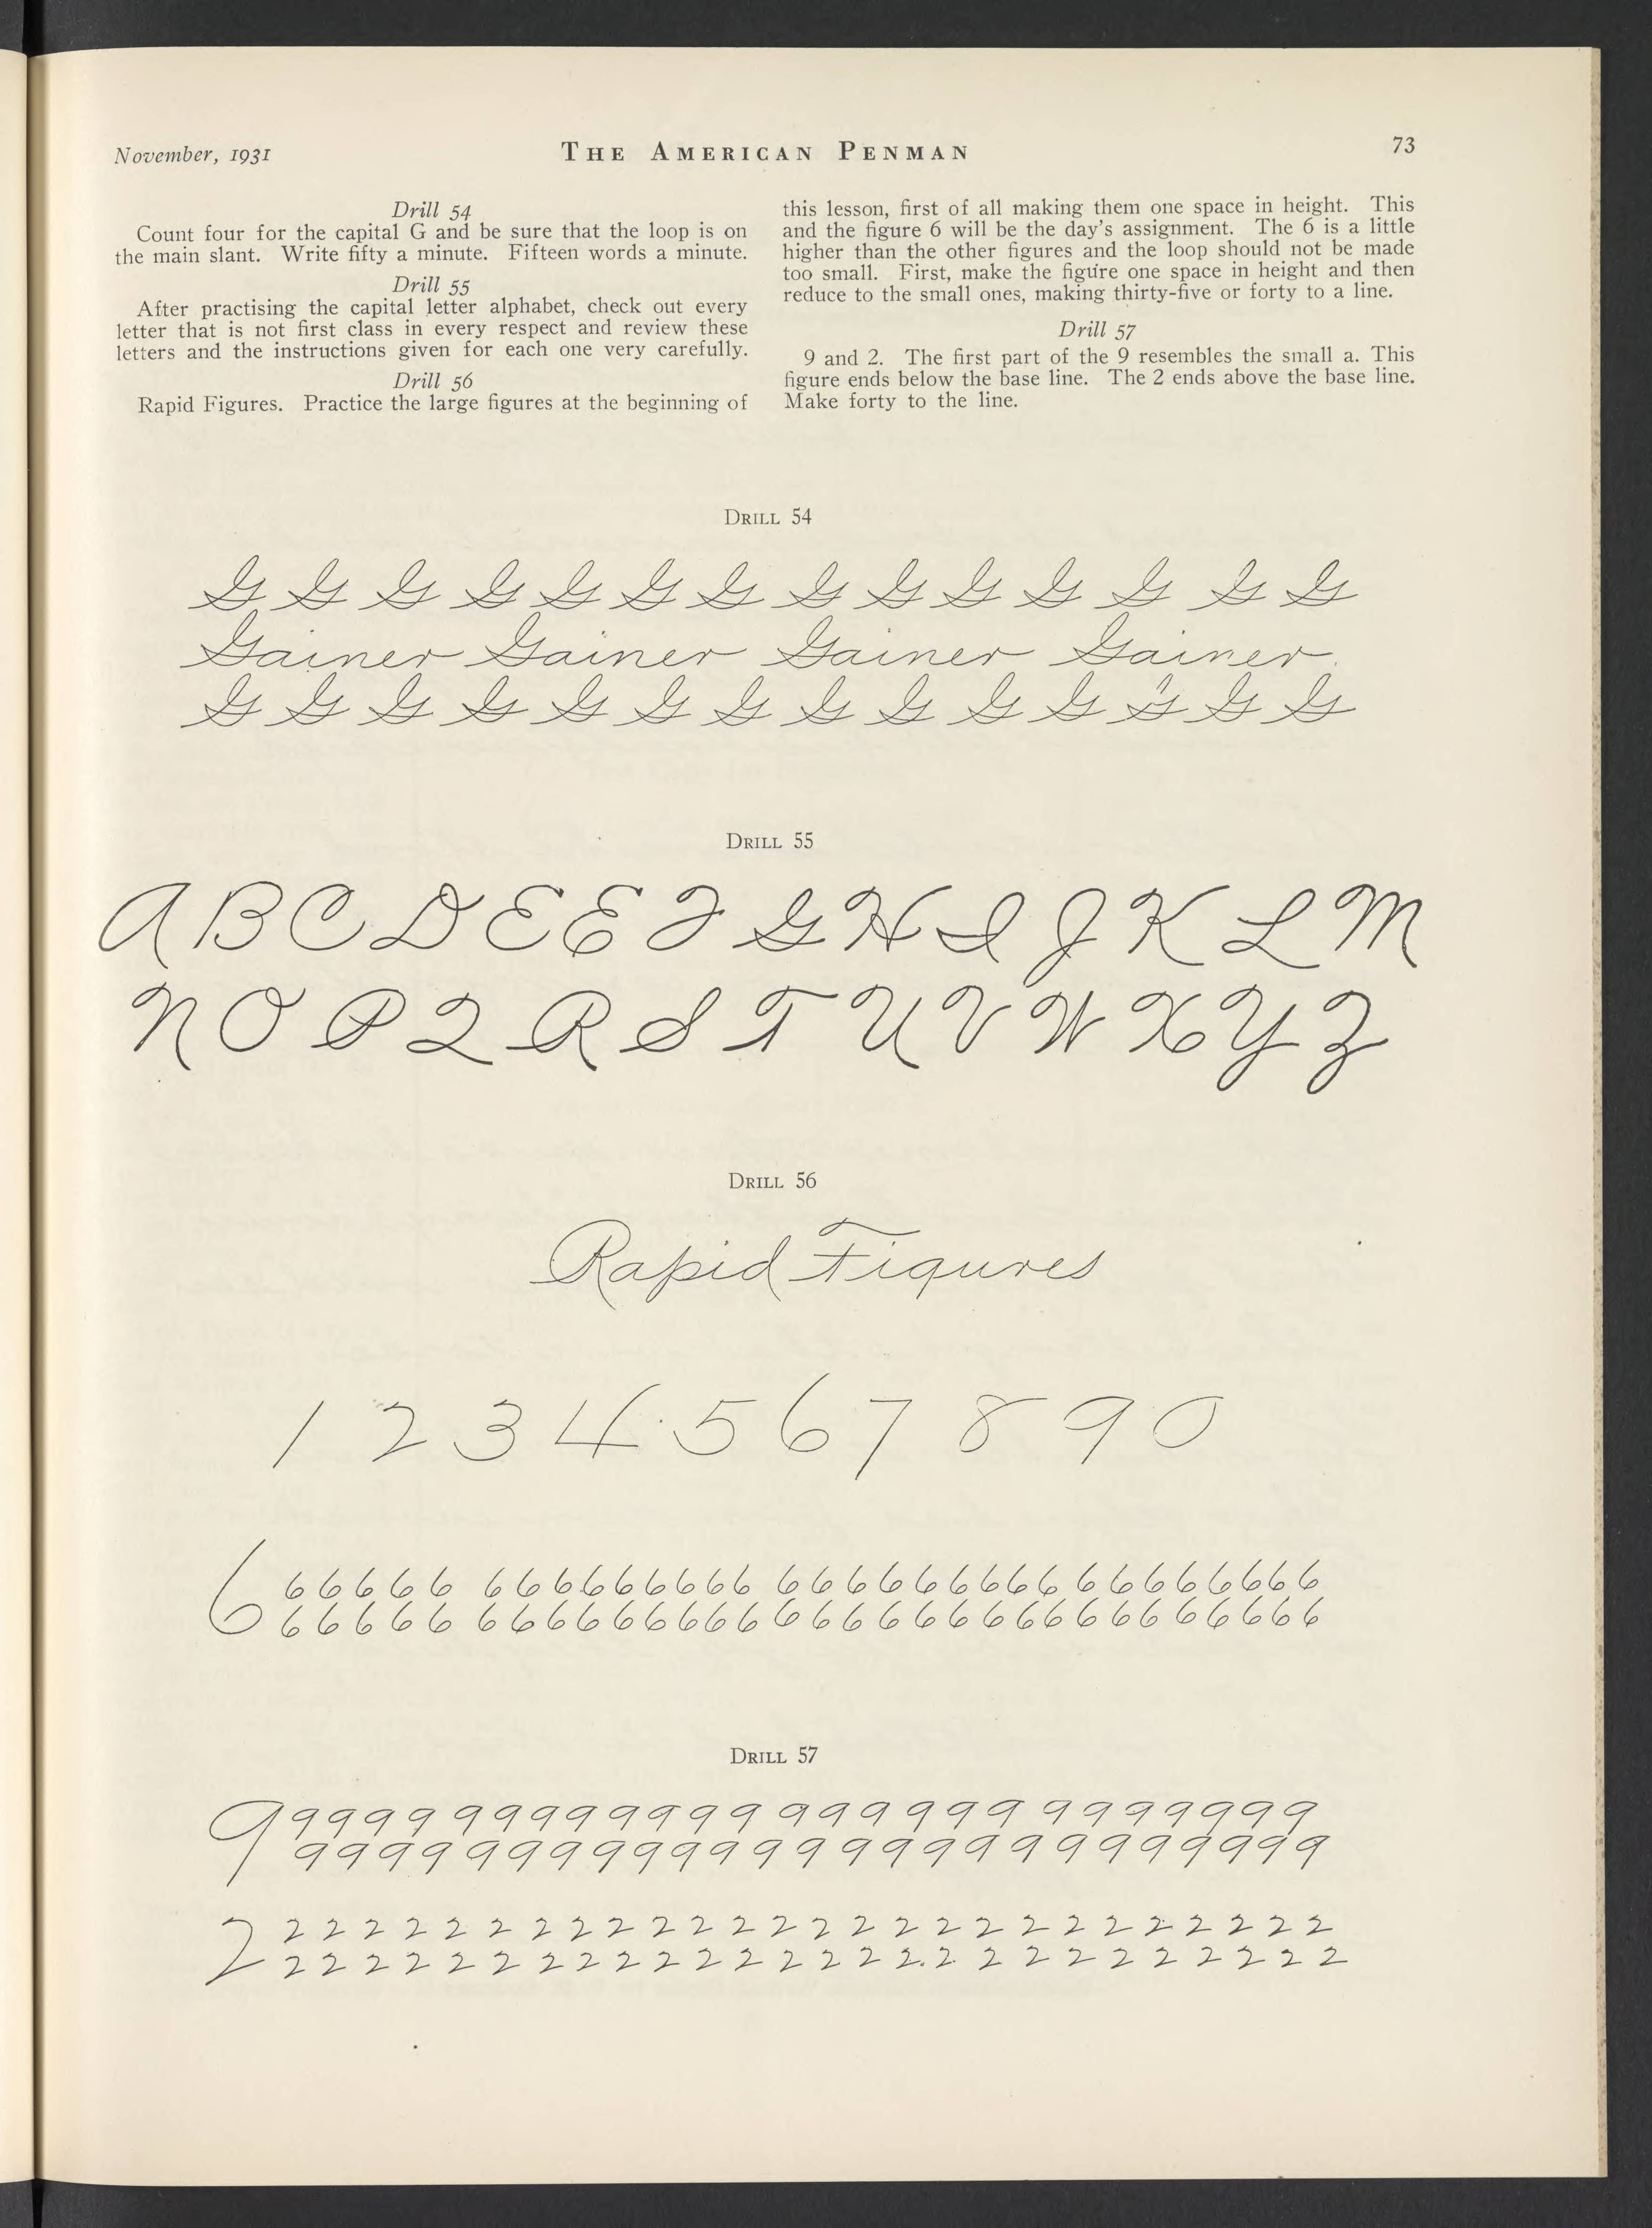 November, 1931
THE AMERICAN PENMAN
73
Drill 54
Count four for the capital G and be sure that the loop is on
the main slant. Write fifty a minute. Fifteen words a minute.
Drill 55
After practising the capital letter alphabet, check out every
letter that is not first class in every respect and review these
letters and the instructions given for each one very carefully.
Drill 56
Rapid Figures. Practice the large figures at the beginning of
this lesson, first of all making them one space in height. This
and the figure 6 will be the day's assignment. The 6 is a little
higher than the other figures and the loop should not be made
too small. First, make the figure one space in height and then
reduce to the small ones, making thirty-five or forty to a line.
Drill 57
9 and 2. The first part of the 9 resembles the small a. This
figure ends below the base line. The 2 ends above the base line.
Make forty to the line.
DRILL 54
G G G G G G G G G G G G G G
Gainer Gainer Gainer Gainer
G G G G G G G G G G G G G G
DRILL 55
A B C D E E F G H I J K L M
N O P Q R S T U V W X Y Z
DRILL 56
Rapid Figures
1 2 3 4 5 6 7 8 9 0
6 66666 666666666 666666666 66666666
66666 666666666 666666666666 66666
DRILL 57
9 9999 99999999 999999 9999999
9999999999999999999999999
2 2 2 2 2 2 2 2 2 2 2 2 2 2 2 2 2 2 2 2 2 2 2 2 2 2 2
2 2 2 2 2 2 2 2 2 2 2 2 2 2 2 2 2 2 2 2 2 2 2 2 2 2